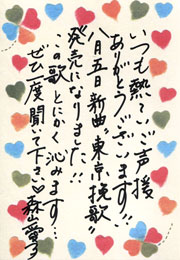 いつも熱ーい声援
ありがとうございます!!
八月五日新曲"東京挽歌"
発売になりました!!
この歌とにかく沁みます…
ぜひ一度聞いて下さい♡